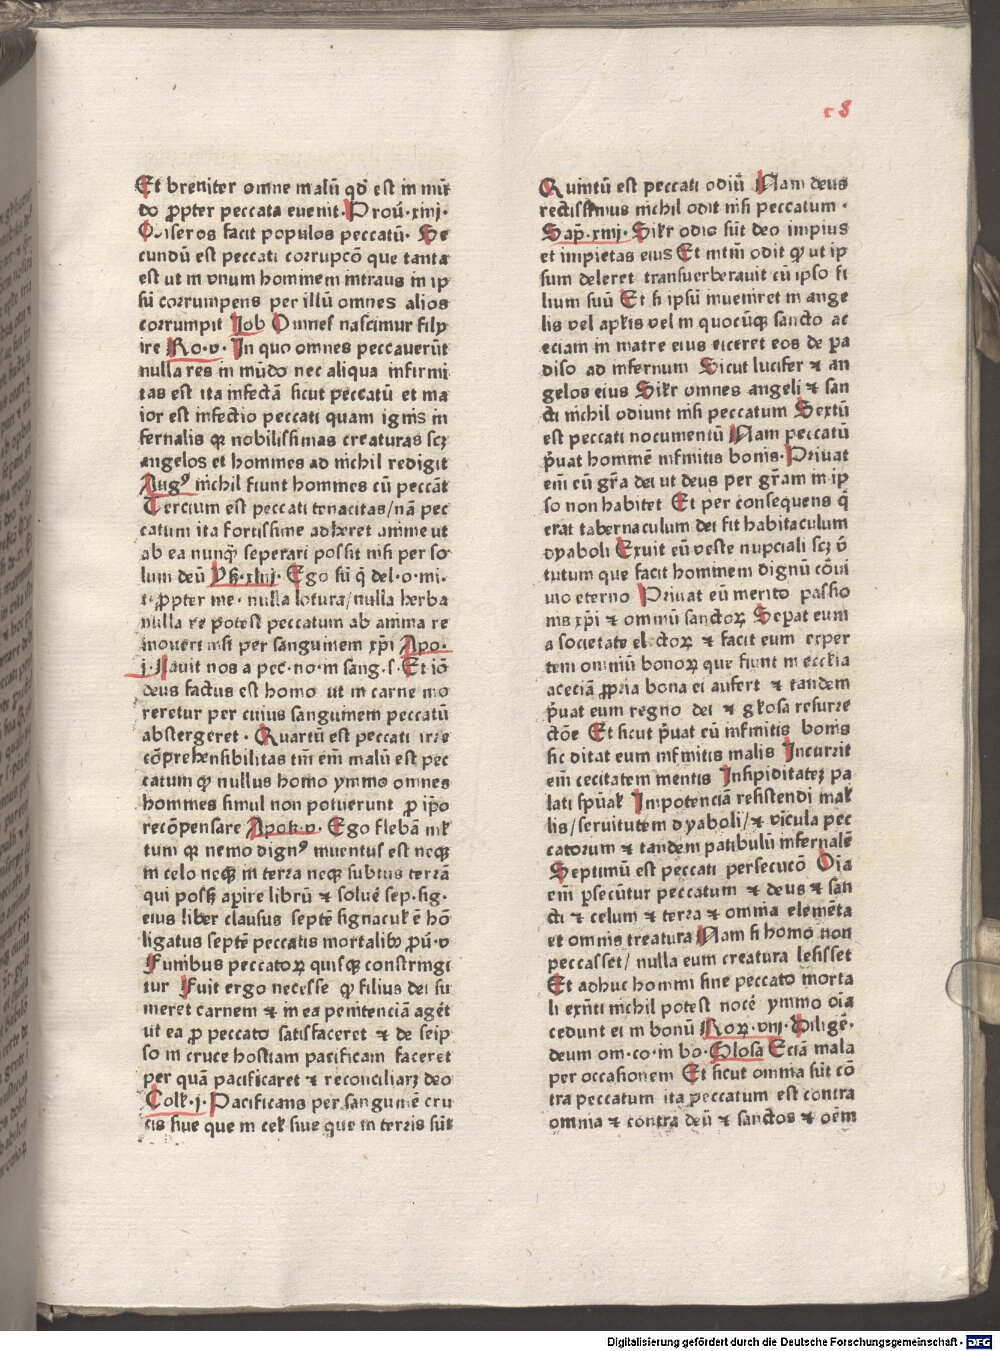 c8
Et breuiter omne malū qd̄ est in mū
do ꝓpter peccata euenit. Prou̅. xiiij.
Miseros facit populos peccatū. Se
cundū est peccati corrupcō que tanta
est ut in vnum hominem intraus in ip
sū corrumpens per illū omnes alios
corrumpit Job Omnes nascimur filij
ire Ro. v. In quo omnes peccauerūt
nulla res in mūdo nec aliqua infirmi
tas est ita infectā sicut peccatū et ma
ior est infectio peccati quam ignis in
fernalis qꝛ nobilissimas creaturas scꝫ
angelos et homines ad nichil redigit
Augꝰ nichil fiunt homines cū peccāt
Tercium est peccati tenacitas/ nā pec
catum ita fortissime adheret anime ut
ab ea nunqͣ seperari possit nisi per so
lum deū Ys. xliij. Ego sū q̄ del. o. mi.
ꝛ. ꝓpter me. nulla lotura/ nulla herba
nulla re potest peccatum ab anima re
moueri nisi per sanguinem xp̄i Apo.
j. Lauit nos a pec. no. in sang. s. Et iō
deus factus est homo ut in carne mo
reretur per cuius sanguinem peccatū
abstergeret. Quartū est peccati irre
cōprehensibilitas tm̄ em̄ malū est pec
catum ꝙ nullus homo ymmo omnes
homines simul non potuerunt ꝓ ip̄o
recōpensare Apok. v. Ego flebā ml̄
tum qꝛ nemo dignꝰ inuentus est neqꝫ
in celo neqꝫ in terra neqꝫ subtus terrā
qui possꝫ aperire librū ⁊ soluē sep. sig.
eius liber clausus septē signacul̄ ē hō
ligatus septē peccatis mortalibꝫ ꝓū. v
Funibus peccatoꝝ quisqꝫ constringi
tur Fuit ergo necesse ꝙ filius dei su
meret carnem ⁊ in ea penitenciā agēt
ut ea ꝓ peccato satisfaceret ⁊ de seip
so in cruce hostiam pacificam faceret
per quā pacificaret ⁊ reconciliarꝫ deo
Coll̄. j. Pacificans per sanguinē cru
cis siue que in cel̄ siue que in terris sūt
Quintū est peccati odiū Nam deus
rectissimus nichil odit nisi peccatum.
Sap̄. xiiij. Sil̄r odio sūt deo impius
et impietas eius Et intm̄ odit ꝙ ut ip
sum deleret transuerberauit cū ipso fi
lium suū Et si ipsū inueniret in ange
lis vel apl̄is vel in quocūqꝫ sancto ac
eciam in matre eius eiceret eos de pa
diso ad infernum Sicut lucifer ⁊ an
gelos eius Sil̄r omnes angeli ⁊ san
cti nichil odiunt nisi peccatum Sextū
est peccati nocumentū Nam peccatū
p̄uat hominē infinitis bonis. Priuat
em̄ eū gr̄a dei ut deus per gr̄am in ip
so non habitet Et per consequens q̄
erat tabernaculum dei fit habitaculum
dyaboli Exuit eū veste nupciali scꝫ v̄
tutum que facit hominem dignū cōui
uio eterno Priuat eū merito passio
nis xp̄i ⁊ omniū sanctoꝝ Sepat eum
a societate electoꝝ ⁊ facit eum exper
tem omniū bonoꝝ que fiunt in eccl̄ia
aceciā ꝓpria bona ei aufert ⁊ tandem
p̄uat eum regno dei ⁊ gl̄osa resurre
ctōe Et sicut p̄uat eū infinitis bonis
sic ditat eum infinitis malis Incurrit
em̄ cecitatem mentis Insipiditateꝫ pa
lati spūal̄ Impotenciā resistendi mal̄
lis/ seruitutem dyaboli/ ⁊ vīcula pec
catorum ⁊ tandem patibulū infernalē
Septimū est peccati persecucō Oīa
em̄ ꝑsecūtur peccatum ⁊ deus ⁊ san
cti ⁊ celum ⁊ terra ⁊ omnia elemēta
et omnis creatura Nam si homo non
peccasset/ nulla eum creatura lesisset
Et adhuc homini sine peccato morta
li exn̄ti nichil potest nocē ymmo oīa
cedunt ei in bonū Roꝝ. viij. Diligē.
deum om. co. in bo. Glosa Eciā mala
per occasionem Et sicut omnia sūt cō
tra peccatum ita peccatum est contra
omnia ⁊ contra deū ⁊ sanctos ⁊ oēm
Digitalisierung gefördert durch die Deutsche Forschungsgemeinschaft - DFG